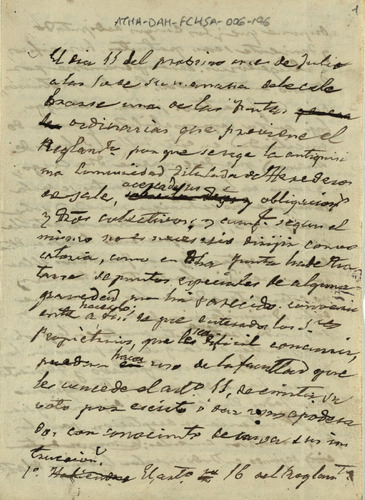 ATHA-DAH-FCHSA-006-196
1
El dia 15 del proximo mes de Julio
a las 10 de su mañana debe cele
brarse una de las Juntas
ordinarias que previene el
Reglamto porque se rige la antiquisi
ma Comunidad titulada de Herederos
de sale, obligacions
y dros colectivos; y aunq. segun el
mismo no es necesario dirigir convo
catoria, como en dha Junta ha de tra
tarse de puntos especiales de alguna
gravedad, me ha parecido conveni
ente hacerlo, a fin de que enterados los Sres
Propietarios, que les dificil concurrir,
puedan hacer uso de la facultad que
les concede el arto 11, de emitir su
voto por escrito ó dar apodera
do, con conocimto de causa sus ins
trucciones.
1o. Habiendo El arto 16 del Reglamto